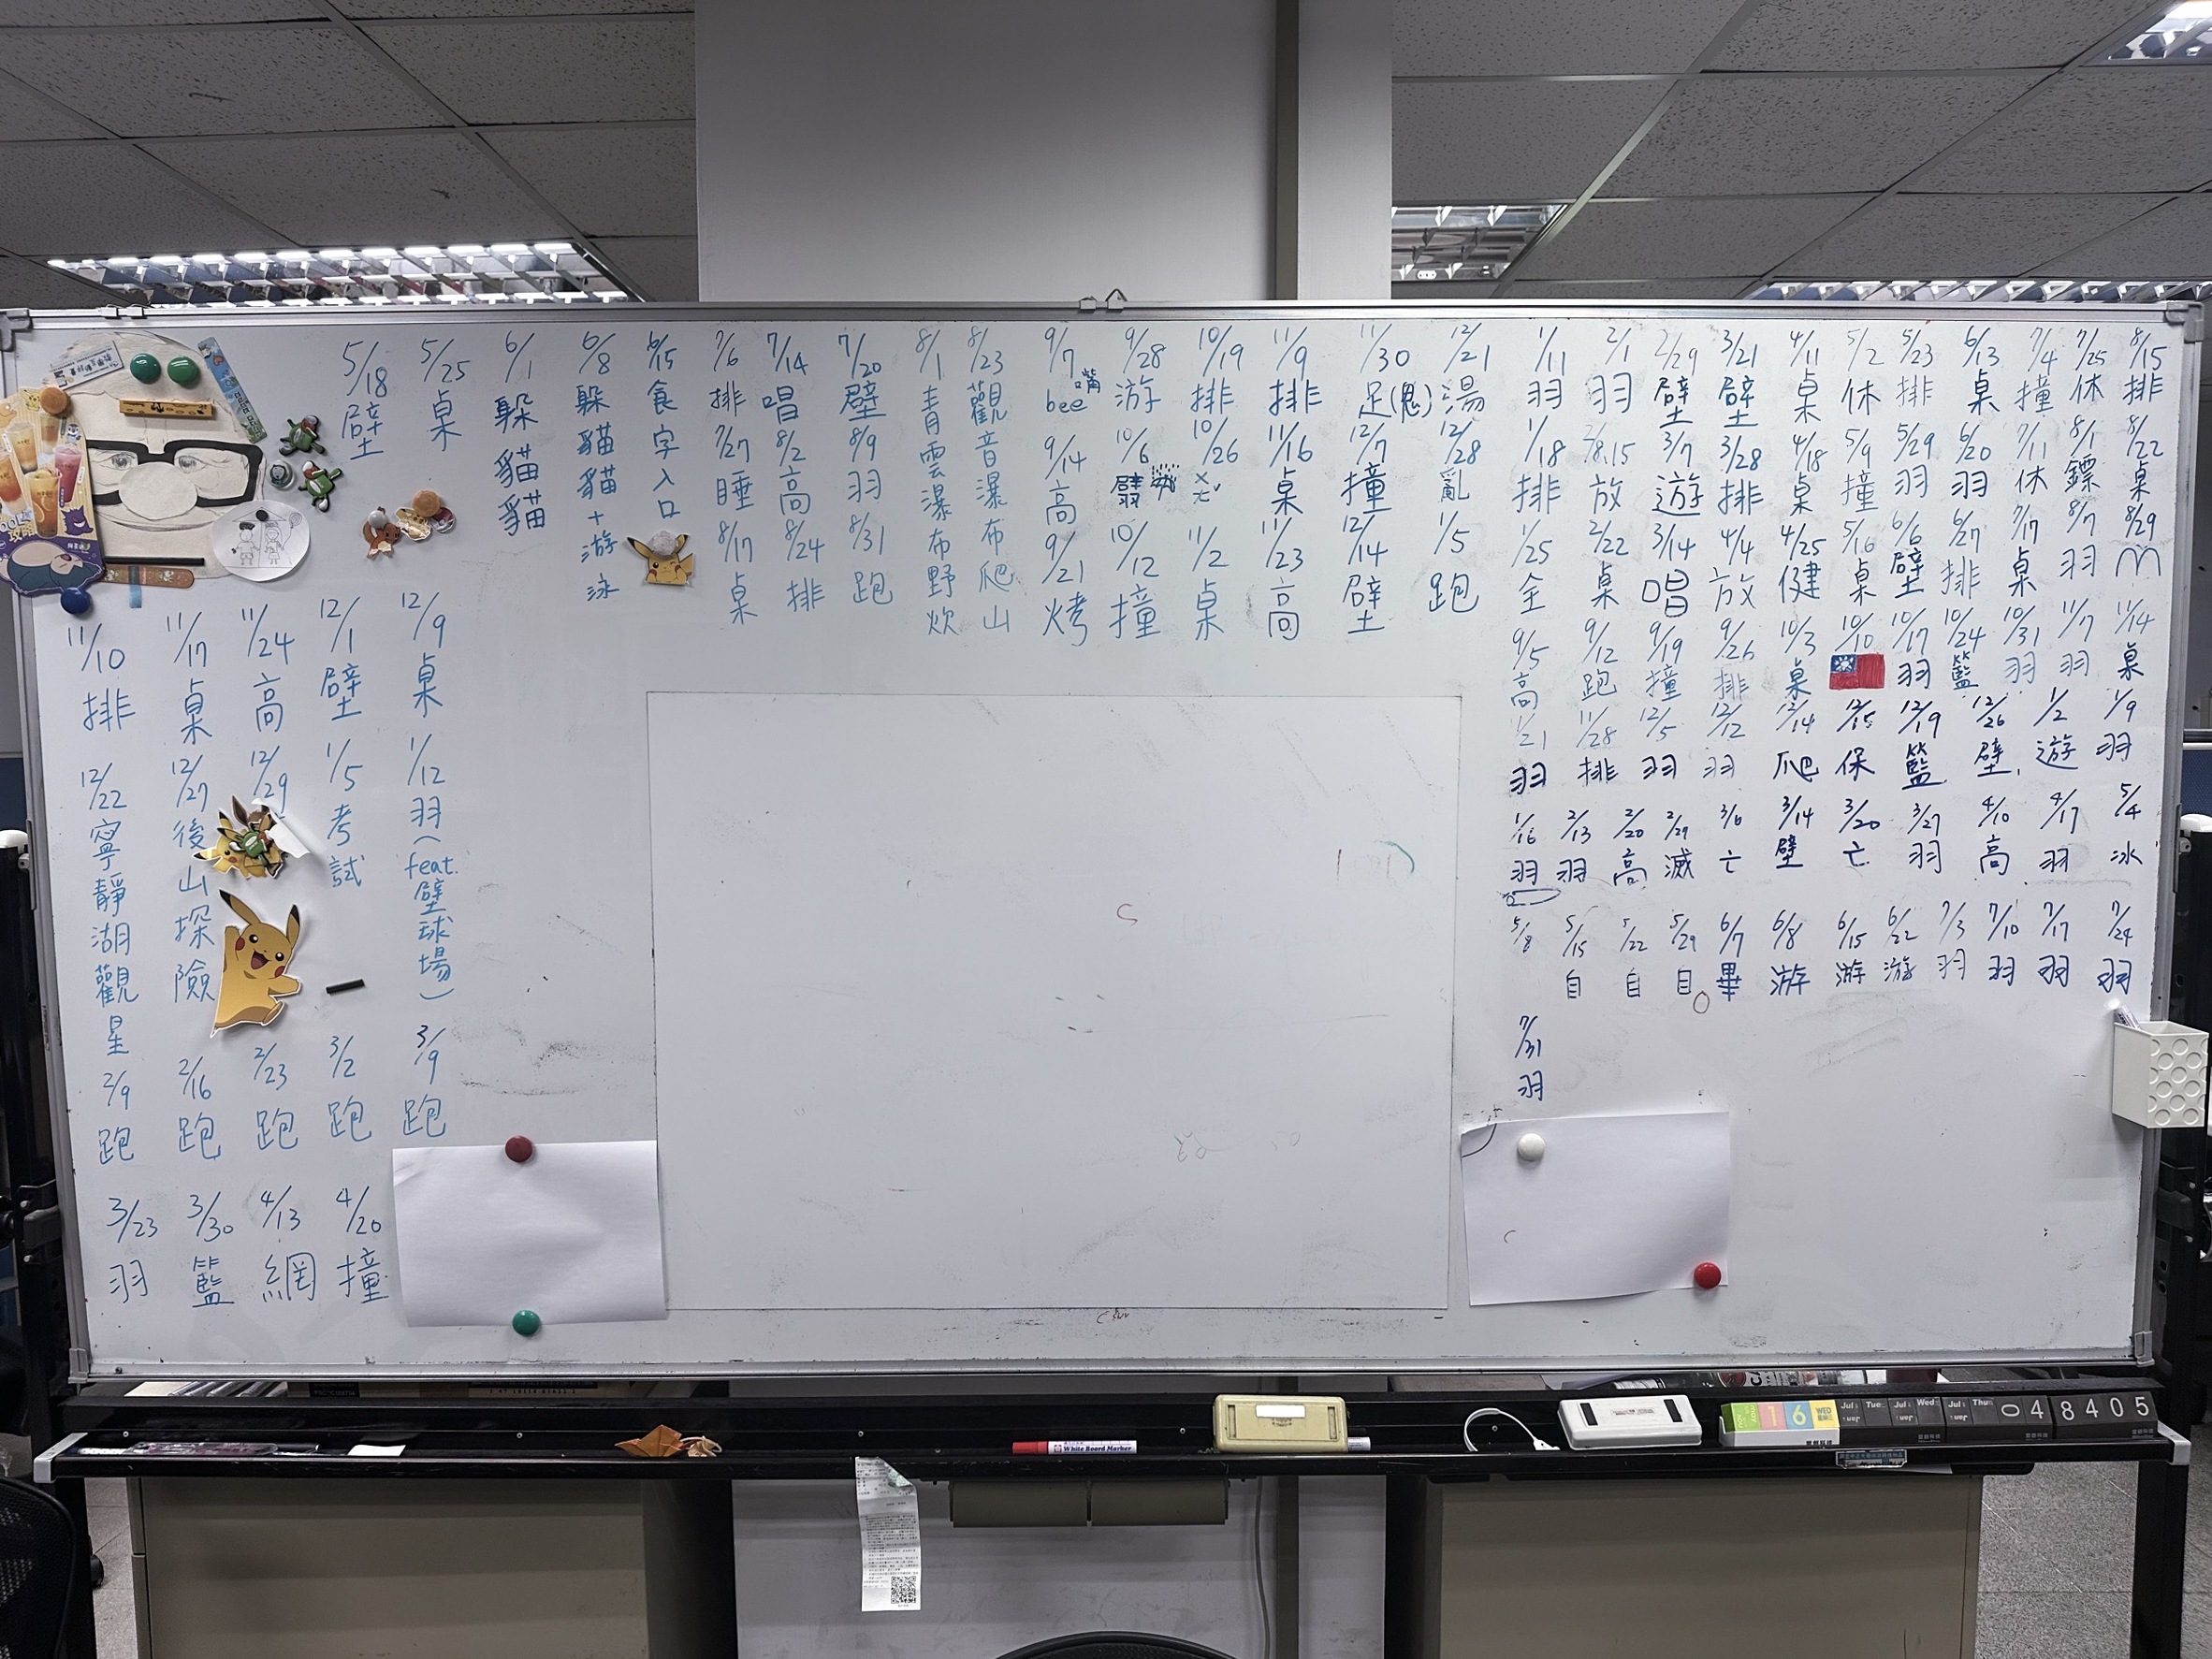 5/18 壁
5/25 桌
6/1 躲貓貓
6/8 躲貓貓+游泳
6/15 食字入口
7/6 排
7/14 唱
7/20 壁
8/1 青雲瀑布野炊
8/23 觀音瀑布爬山
9/7 bee 嘴
9/28 游
10/19 排
11/9 排
11/30 足(鬼)
12/21 湯
7/27 睡
8/2 高
8/9 羽
9/14 高
10/6
10/26 ㄘㄜˋ
11/16 桌
12/7 撞
12/28 亂
8/17 桌
8/24 排
8/31 跑
9/21 烤
10/12 撞
11/2 桌
11/23 高
12/14 壁
1/5 跑
1/11 羽
2/1 羽
2/29 壁
3/21 壁
4/11 桌
5/2 休
5/23 排
6/13 桌
7/4 撞
7/25 休
8/15 排
1/18 排
2/8.15 放
3/7 遊
3/28 排
4/18 桌
5/9 撞
5/29 羽
6/20 羽
7/11 休
8/1 鏢
8/22 桌
1/25 全
2/22 桌
3/14 唱
4/4 放
4/25 健
5/16 桌
6/6 壁
6/27 排
7/17 桌
8/7 羽
8/29 M
9/5 高
9/12 跑
9/19 撞
9/26 排
10/3 桌
10/10
10/17 羽
10/24 籃
10/31 羽
11/7 羽
11/14 桌
11/21 羽
11/28 排
12/5 羽
12/12 羽
12/14 爬
12/15 保
12/19 籃
12/26 壁
1/2 遊
1/9 羽
1/16 羽
2/13 羽
2/20 高
2/29 滅
3/6 亡
3/14 壁
3/20 亡
3/27 羽
4/10 高
4/17 羽
5/4 冰
5/8
5/15 自
5/22 自
5/29 自
6/7 畢
6/8 游
6/15 游
6/22 游
7/3 羽
7/10 羽
7/17 羽
7/24 羽
7/31 羽
11/10 排
11/17 桌
11/24 高
12/1 壁
12/9 桌
12/22 寧靜湖觀星
12/27 後山探險
12/29
1/5 考試
1/12 羽(feat.壁球場)
2/9 跑
2/16 跑
2/23 跑
3/2 跑
3/9 跑
3/23 羽
3/30 籃
4/13 網
4/20 撞
White Board Marker
1 6 WED
Jul Tue Jul Wed Jul Thu 0 4 8 4 0 5